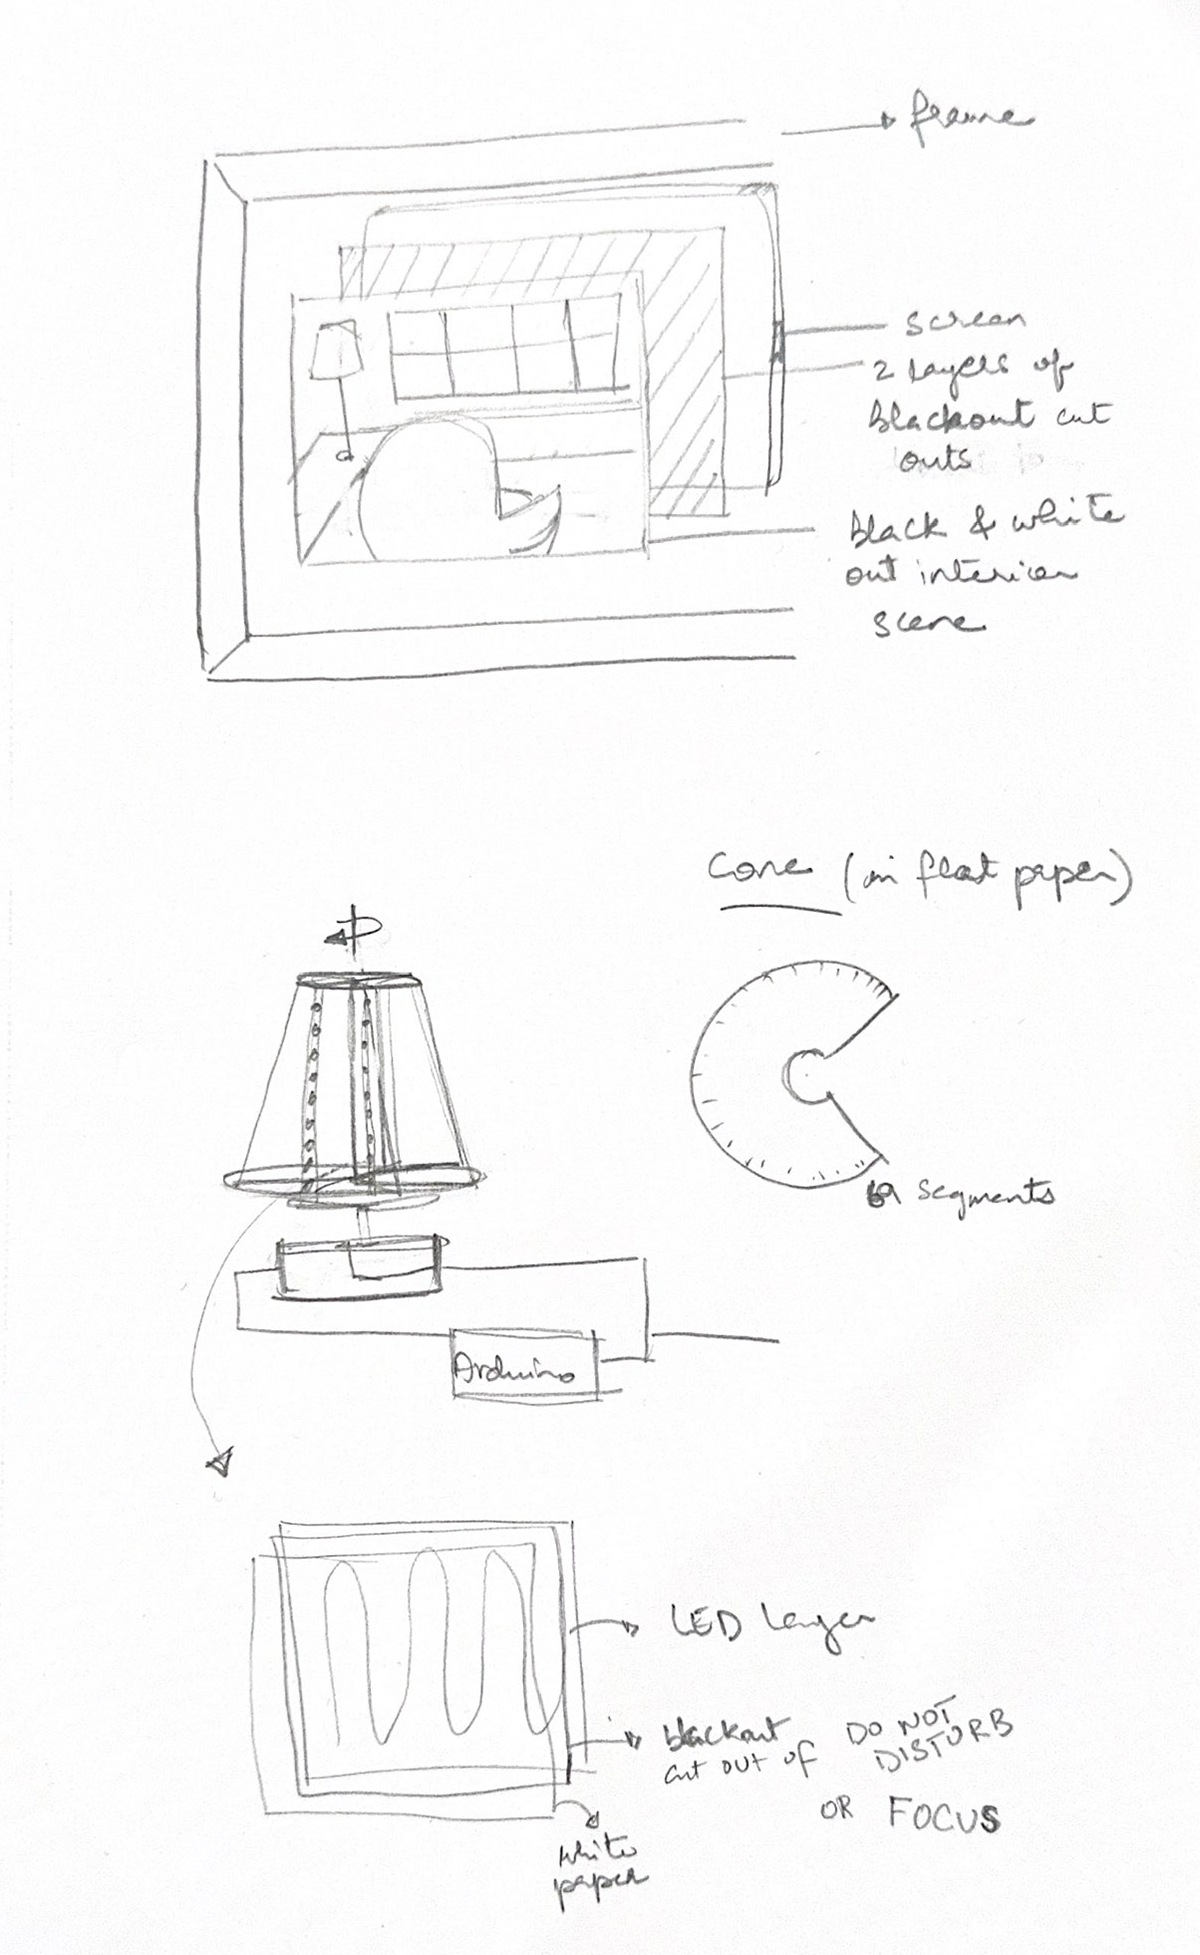 frame
screen
2 layers of
blackout cut
outs
Black & white
out interior
scene
Cone (in flat paper)
segments
Arduino
LED Layer
blackout
cut out of DO NOT
DISTURB
OR FOCUS
white
paper